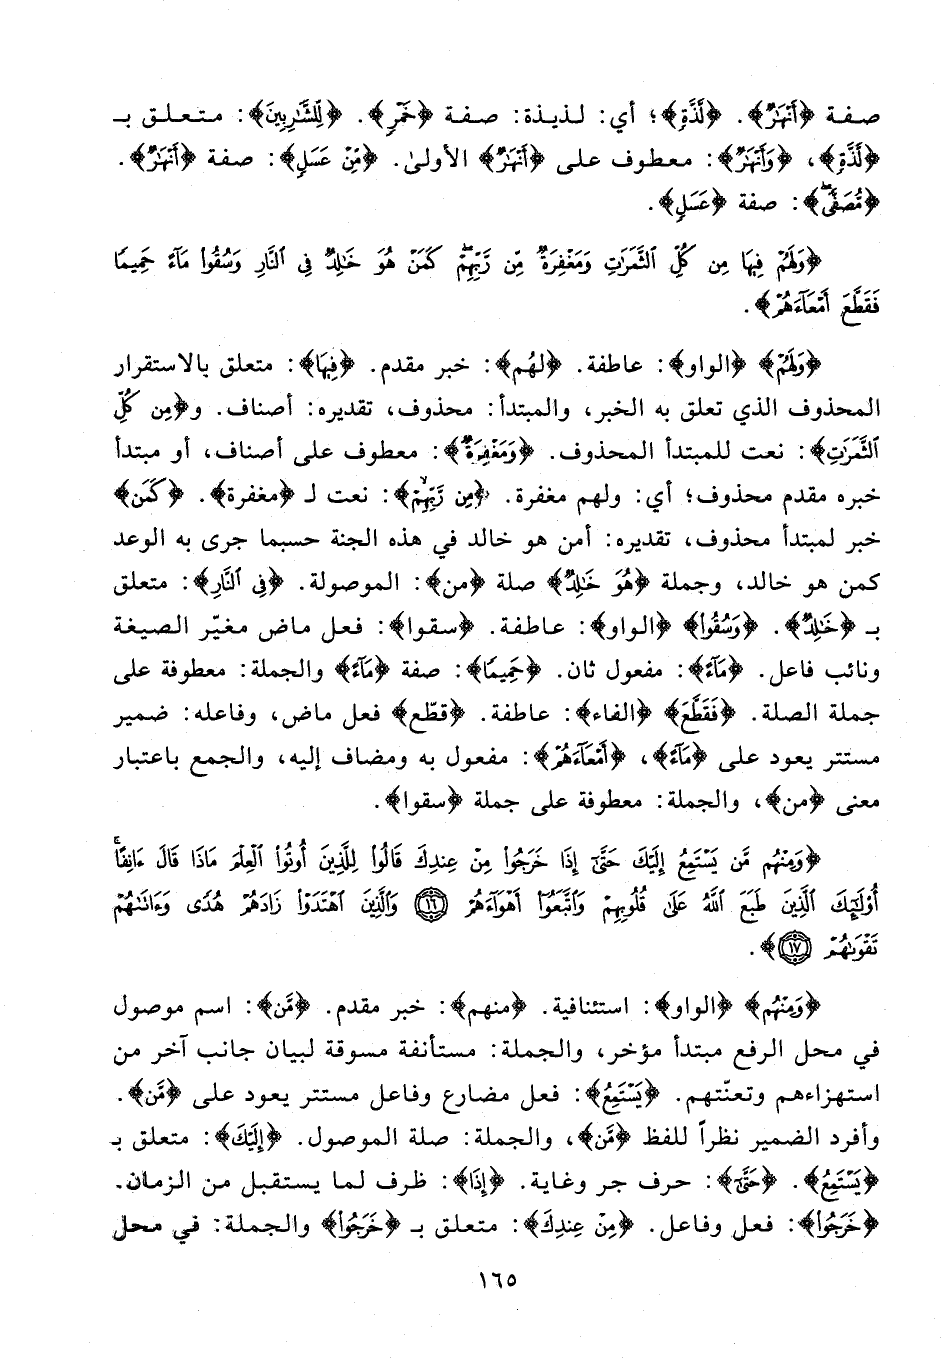 صفة ﴿أَنْهَٰرٌ﴾. ﴿لَّذَّةٍ﴾؛ أي: لذيذة: صفة ﴿خَمْرٍ﴾. ﴿لِّلشَّٰرِبِينَ﴾: متعلق بـ
﴿لَّذَّةٍ﴾، ﴿وَأَنْهَٰرٌ﴾: معطوف على ﴿أَنْهَٰرٌ﴾ الأولىٰ. ﴿مِّنْ عَسَلٍ﴾: صفة ﴿أَنْهَٰرٌ﴾.
﴿مُّصَفًّىۖ﴾: صفة ﴿عَسَلٍ﴾.
﴿وَلَهُمْ فِيهَا مِن كُلِّ ٱلثَّمَرَٰتِ وَمَغْفِرَةٌ مِّن رَّبِّهِمْۖ كَمَنْ هُوَ خَٰلِدٌ فِى ٱلنَّارِ وَسُقُوا۟ مَآءً حَمِيمًا
فَقَطَّعَ أَمْعَآءَهُمْ﴾.
﴿وَلَهُمْ﴾ ﴿الواو﴾: عاطفة. ﴿لهُم﴾: خبر مقدم. ﴿فِيهَا﴾: متعلق بالاستقرار
المحذوف الذي تعلق به الخبر، والمبتدأ: محذوف، تقديره: أصناف. و﴿مِن كُلِّ
ٱلثَّمَرَٰتِ﴾: نعت للمبتدأ المحذوف. ﴿وَمَغْفِرَةٌ﴾: معطوف على أصناف، أو مبتدأ
خبره مقدم محذوف؛ أي: ولهم مغفرة. ﴿مِّن رَّبِّهِمْ﴾: نعت لـ ﴿مغفرة﴾. ﴿كَمَنْ﴾
خبر لمبتدأ محذوف، تقديره: أمن هو خالد في هذه الجنة حسبما جرى به الوعد
كمن هو خالد، وجملة ﴿هُوَ خَٰلِدٌ﴾ صلة ﴿من﴾: الموصولة. ﴿فِى ٱلنَّارِ﴾: متعلق
بـ ﴿خَٰلِدٌ﴾. ﴿وَسُقُوا۟﴾ ﴿الواو﴾: عاطفة. ﴿سقوا﴾: فعل ماض مغيّر الصيغة
ونائب فاعل. ﴿مَآءً﴾: مفعول ثان. ﴿حَمِيمًا﴾: صفة ﴿مَآءً﴾ والجملة: معطوفة على
جملة الصلة. ﴿فَقَطَّعَ﴾ ﴿الفاء﴾: عاطفة. ﴿قطّع﴾ فعل ماض، وفاعله: ضمير
مستتر يعود على ﴿مَآءً﴾، ﴿أَمْعَآءَهُمْ﴾: مفعول به ومضاف إليه، والجمع باعتبار
معنى ﴿من﴾، والجملة: معطوفة على جملة ﴿سقوا﴾.
﴿وَمِنْهُم مَّن يَسْتَمِعُ إِلَيْكَ حَتَّىٰٓ إِذَا خَرَجُوا۟ مِنْ عِندِكَ قَالُوا۟ لِلَّذِينَ أُوتُوا۟ ٱلْعِلْمَ مَاذَا قَالَ ءَانِفًاۚ
أُو۟لَٰٓئِكَ ٱلَّذِينَ طَبَعَ ٱللَّهُ عَلَىٰ قُلُوبِهِمْ وَٱتَّبَعُوٓا۟ أَهْوَآءَهُمْ ١٦ وَٱلَّذِينَ ٱهْتَدَوْا۟ زَادَهُمْ هُدًى وَءَاتَىٰهُمْ
تَقْوَىٰهُمْ ١٧﴾.
﴿وَمِنْهُم﴾ ﴿الواو﴾: استئنافية. ﴿منهم﴾: خبر مقدم. ﴿مَّن﴾: اسم موصول
في محل الرفع مبتدأ مؤخر، والجملة: مستأنفة مسوقة لبيان جانب آخر من
استهزاءهم وتعنّتهم. ﴿يَسْتَمِعُ﴾: فعل مضارع وفاعل مستتر يعود على ﴿مَّن﴾.
وأفرد الضمير نظراً للفظ ﴿مَّن﴾، والجملة: صلة الموصول. ﴿إِلَيْكَ﴾: متعلق بـ
﴿يَسْتَمِعُ﴾. ﴿حَتَّىٰٓ﴾: حرف جر وغاية. ﴿إِذَا﴾: ظرف لما يستقبل من الزمان.
﴿خَرَجُوا۟﴾: فعل وفاعل. ﴿مِنْ عِندِكَ﴾: متعلق بـ ﴿خَرَجُوا۟﴾ والجملة: في محل
١٦٥